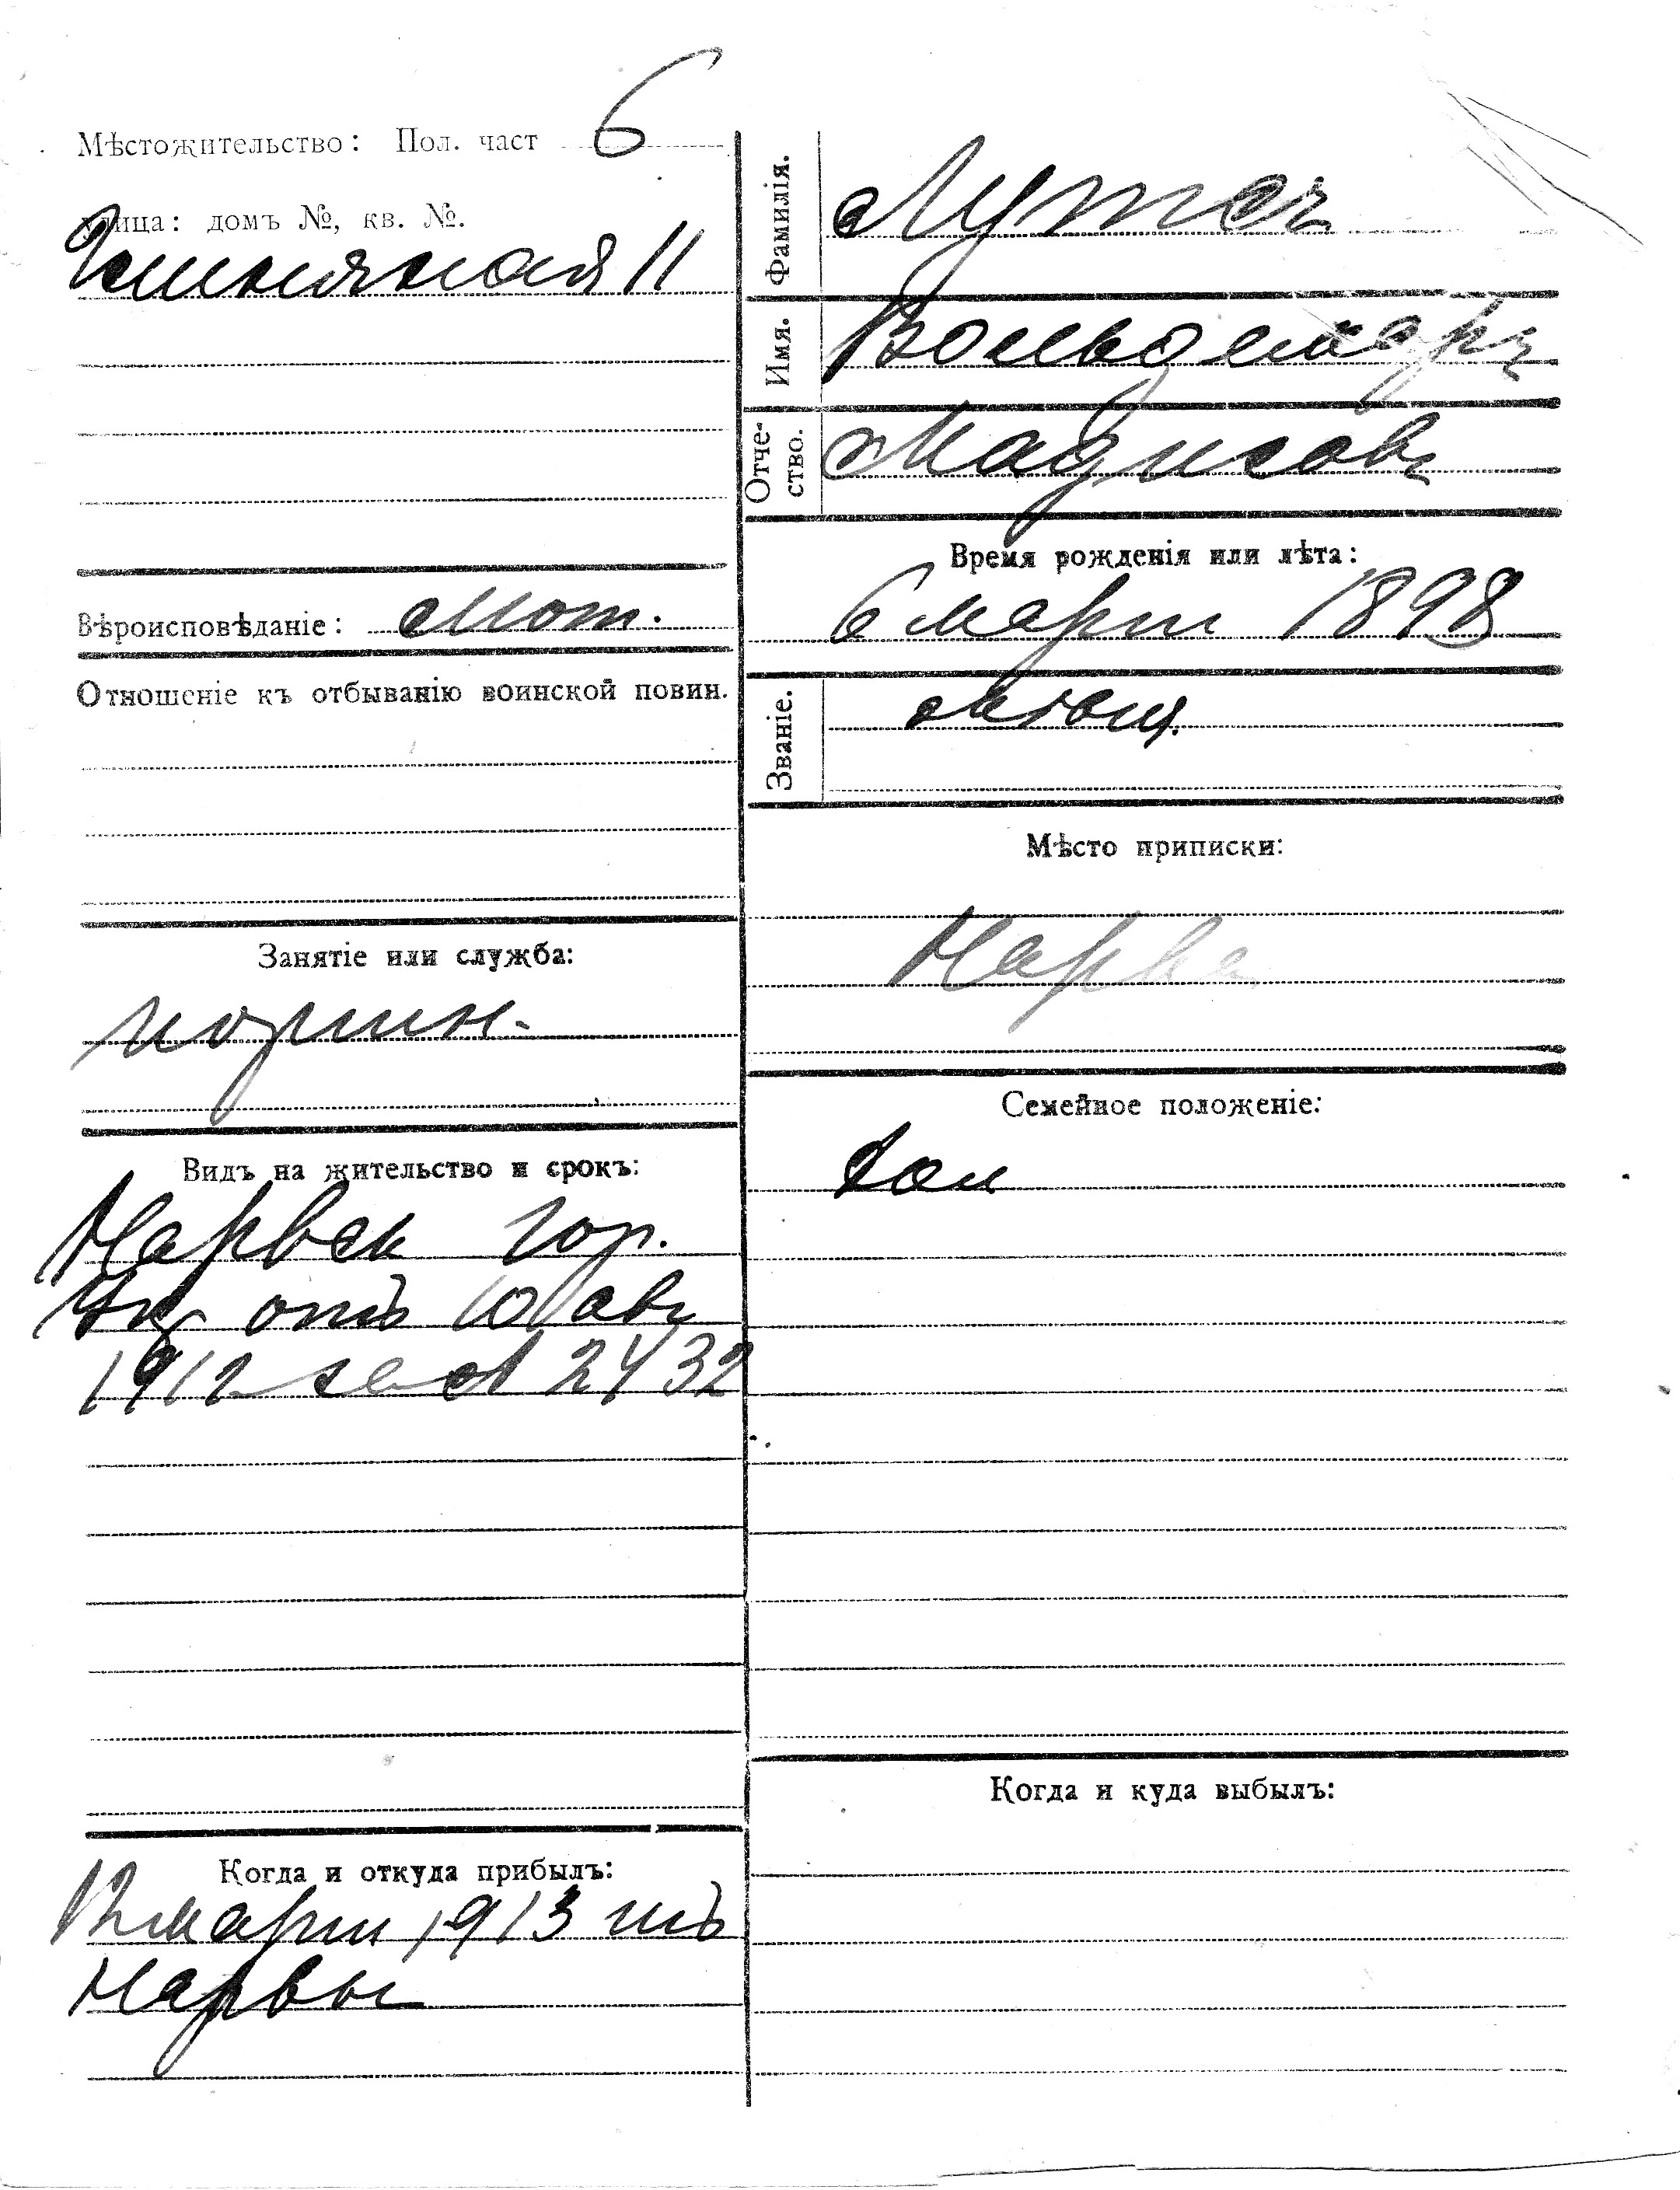 Мѣстожительство: Пол. част 6
улица: домъ №, кв. №.
11
Вѣроисповѣданіе: Лют.
Отношеніе къ отбыванію воинской повин.
Занятіе или служба:
Видъ на жительство и срокъ:
Нарвск гор.
отъ 10 авг
1912 за № 2432
Когда и откуда прибылъ:
12 март 1913 изъ
Нарвы
Фамилія. Лутсъ
Имя. Вольдемаръ
Отче-
ство. Мадисовъ
Время рожденія или лѣта:
6 март 1898
Званіе. мѣщ.
Мѣсто приписки:
Нарва
Семейное положеніе:
хол
Когда и куда выбылъ: